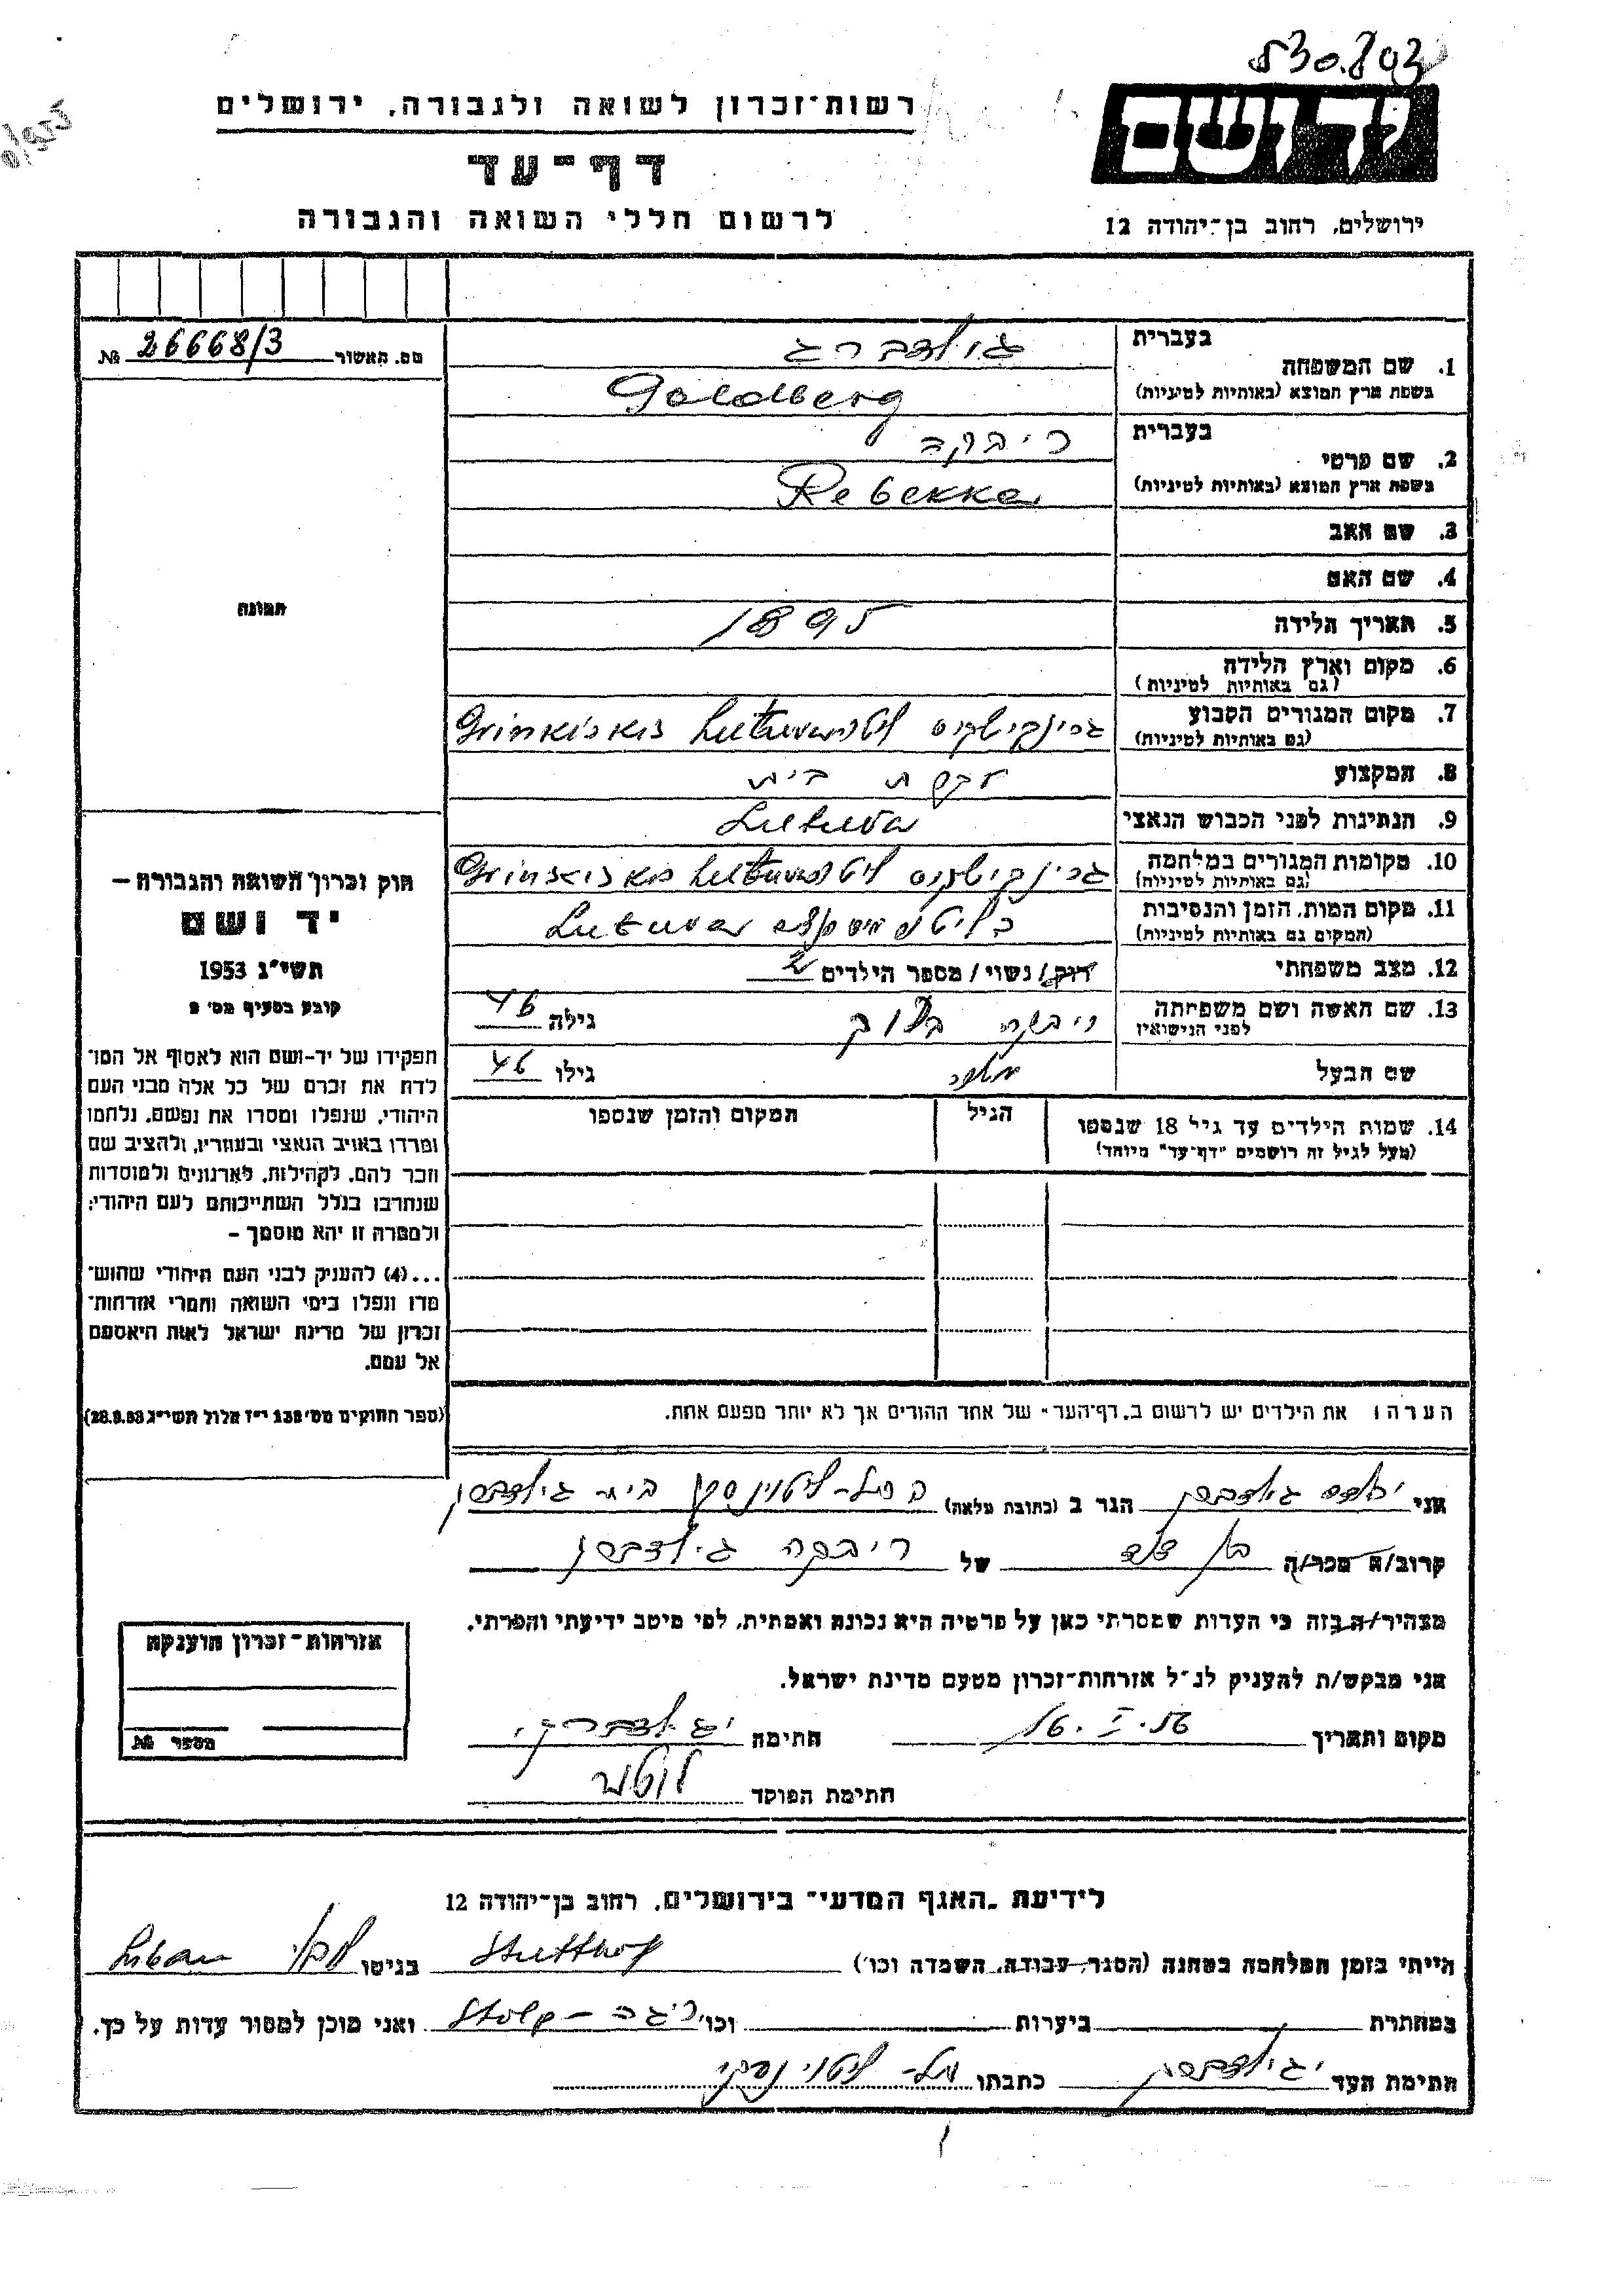 530.803
יד ושם
רשות־זכרון לשואה ולגבורה, ירושלים
דף־עד
לרשום חללי השואה והגבורה
ירושלים, רחוב בן־יהודה 12
מס. האשור 26668/3 №
תמונה
חוק זכרון השואה והגבורה —
יד ושם
תשי״ג 1953
קובע בסעיף מס׳ 2
תפקידו של יד-ושם הוא לאסוף אל המו־
לדת את זכרם של כל אלה מבני העם
היהודי, שנפלו ומסרו את נפשם, נלחמו
ומרדו באויב הנאצי ובעוזריו, ולהציב שם
וזכר להם, לקהילות, לארגונים ולמוסדות
שנחרבו בגלל השתייכותם לעם היהודי;
ולמטרה זו יהא מוסמך –
...(4) להעניק לבני העם היהודי שהוש־
מדו ונפלו בימי השואה והמרי אזרחות־
זכרון של מדינת ישראל לאות היאספם
אל עמם.
(ספר החוקים מס׳ 132 י״ז אלול תשי״ג 28.8.53)
בעברית גולדברג
1. שם המשפחה
בשפת ארץ המוצא (באותיות לטיניות) Goldberg
בעברית ריבקה
2. שם פרטי
בשפת ארץ המוצא (באותיות לטיניות) Rebekka
3. שם האב
4. שם האם
5. תאריך הלידה 1895
6. מקום וארץ הלידה
(גם באותיות לטיניות)
7. מקום המגורים הקבוע גרינקישקיס ליטא Grinkiskis Lietuva
(גם באותיות לטיניות)
8. המקצוע עקרת בית
9. הנתינות לפני הכבוש הנאצי Lietuva
10. מקומות המגורים במלחמה גרינקישקיס ליטא Grinskiskis Lietuva
(גם באותיות לטיניות)
11. מקום המות, הזמן והנסיבות Lietuva
(המקום גם באותיות לטיניות)
12. מצב משפחתי רווק/נשוי/מספר הילדים 2
13. שם האשה ושם משפחתה ריבקה בלוך גילה 46
לפני הנישואין
שם הבעל מאיר גילו 46
14. שמות הילדים עד גיל 18 שנספו הגיל המקום והזמן שנספו
(מעל לגיל זה רושמים ״דף־עד״ מיוחד)
הערה: את הילדים יש לרשום ב„דף־העד״ של אחד ההורים אך לא יותר מפעם אחת.
אני גולדברג הגר ב (כתובת מלאה) בית גולדברג
קרוב/ה מכר/ה בן דוד של ריבקה גולדברג
מצהיר/ה בזה כי העדות שמסרתי כאן על פרטיה היא נכונה ואמתית, לפי מיטב ידיעתי והכרתי.
אני מבקש/ת להעניק לנ״ל אזרחות־זכרון מטעם מדינת ישראל.
מקום ותאריך 16.I.56 חתימה י. גולדברג
חתימת הפוקד
אזרחות־זכרון מוענקת
מספר №
לידיעת „האגף המדעי״ בירושלים, רחוב בן־יהודה 12
הייתי בזמן המלחמה במחנה (הסגר, עבודה, השמדה וכו׳) Stutthof בגיטו Libau
במחתרת ביערות וכו׳ ריגה – Stolp ואני מוכן למסור עדות על כך.
חתימת העד י. גולדברג כתבתו תל- ליטוינסקי